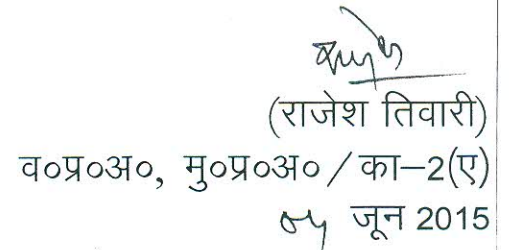 (राजेश तिवारी)
व०प्र०अ०, मु०प्र०अ० / का–2(ए)
जून 2015